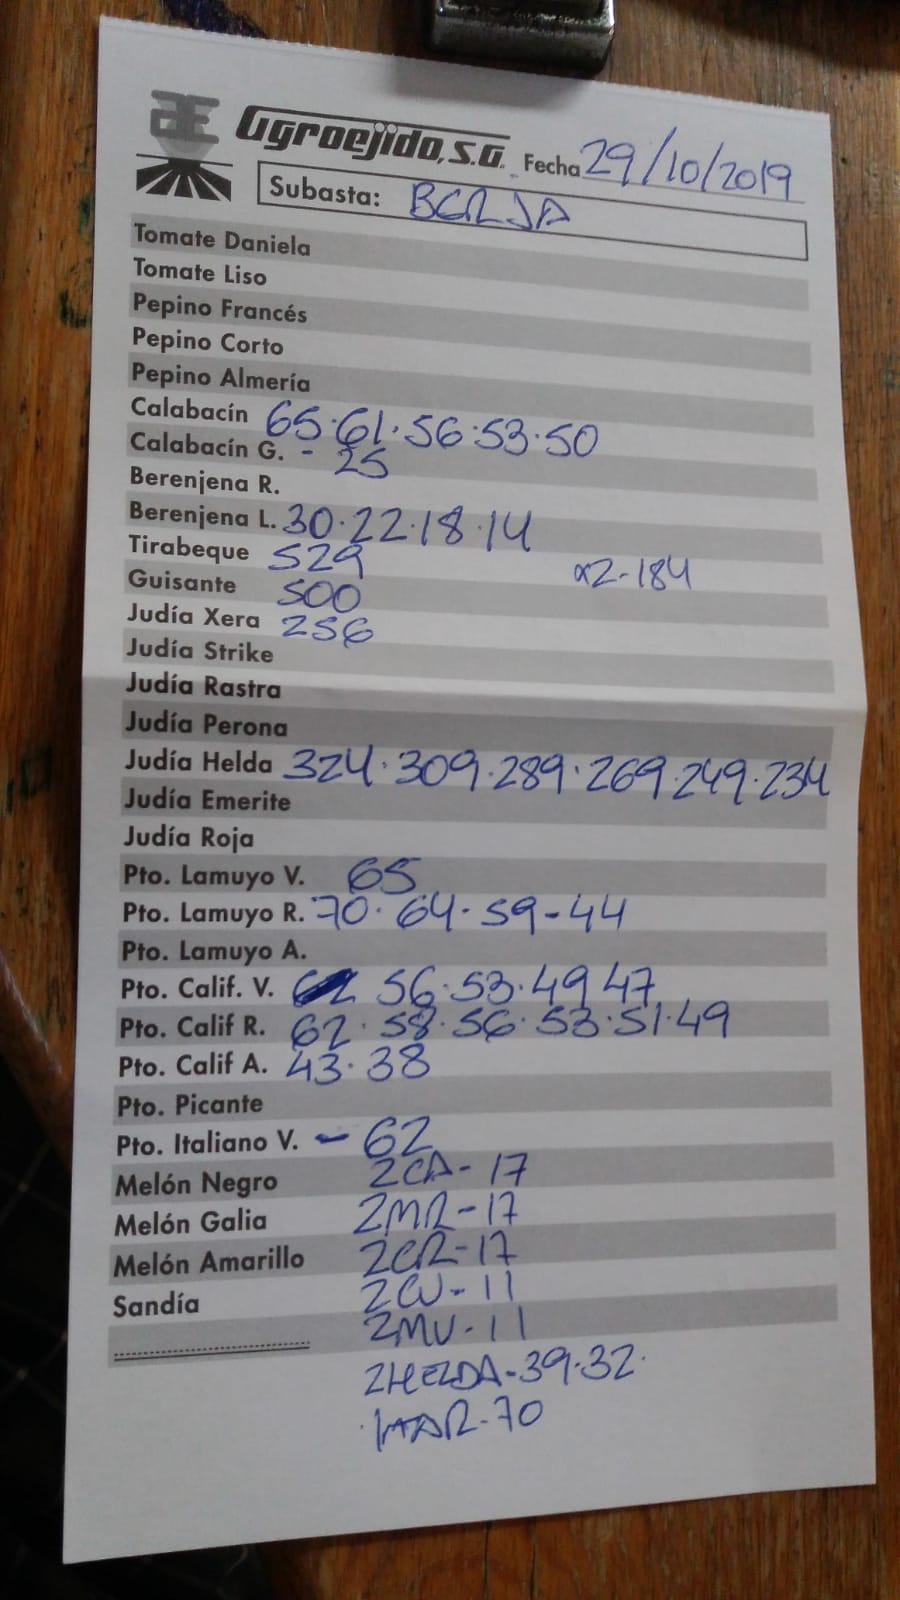 Agroejido, S.A. Fecha 29/10/2019
Subasta: BERJA
Tomate Daniela
Tomate Liso
Pepino Francés
Pepino Corto
Pepino Almería
Calabacín 65·61·56·53·50
Calabacín G. - 25
Berenjena R.
Berenjena L. 30·22·18·14
Tirabeque 529 x2-184
Guisante 500
Judía Xera 256
Judía Strike
Judía Rastra
Judía Perona
Judía Helda 324·309·289·269·249·234
Judía Emerite
Judía Roja
Pto. Lamuyo V. 65
Pto. Lamuyo R. 70·64·59-44
Pto. Lamuyo A.
Pto. Calif. V. 56·53·49 47
Pto. Calif R. 62·58·56·53·51·49
Pto. Calif A. 43·38
Pto. Picante
Pto. Italiano V. - 62
Melón Negro 2CA-17
Melón Galia 2MR-17
Melón Amarillo 2CR-17
Sandía 2CV-11
2MV-11
2HELDA-39·32·
MAR-70